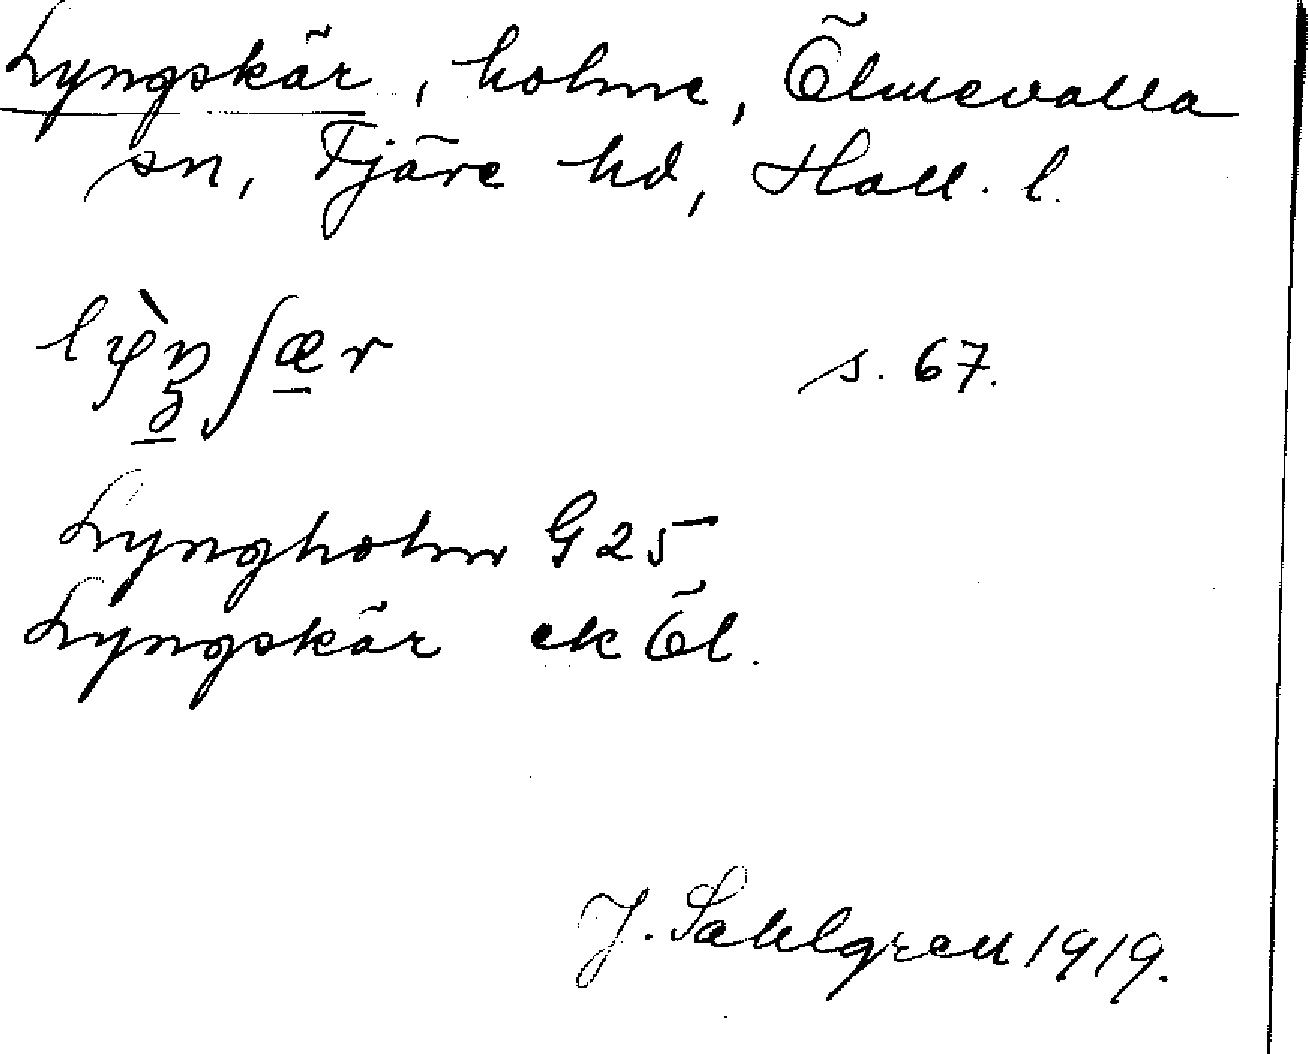 Lyngskär, holme, Ölmevalla
sn, Fjäre hd, Hall. l.
s. 67.
Lyngholm G 25
Lyngskär ek Öl.
J. Sahlgren 1919.